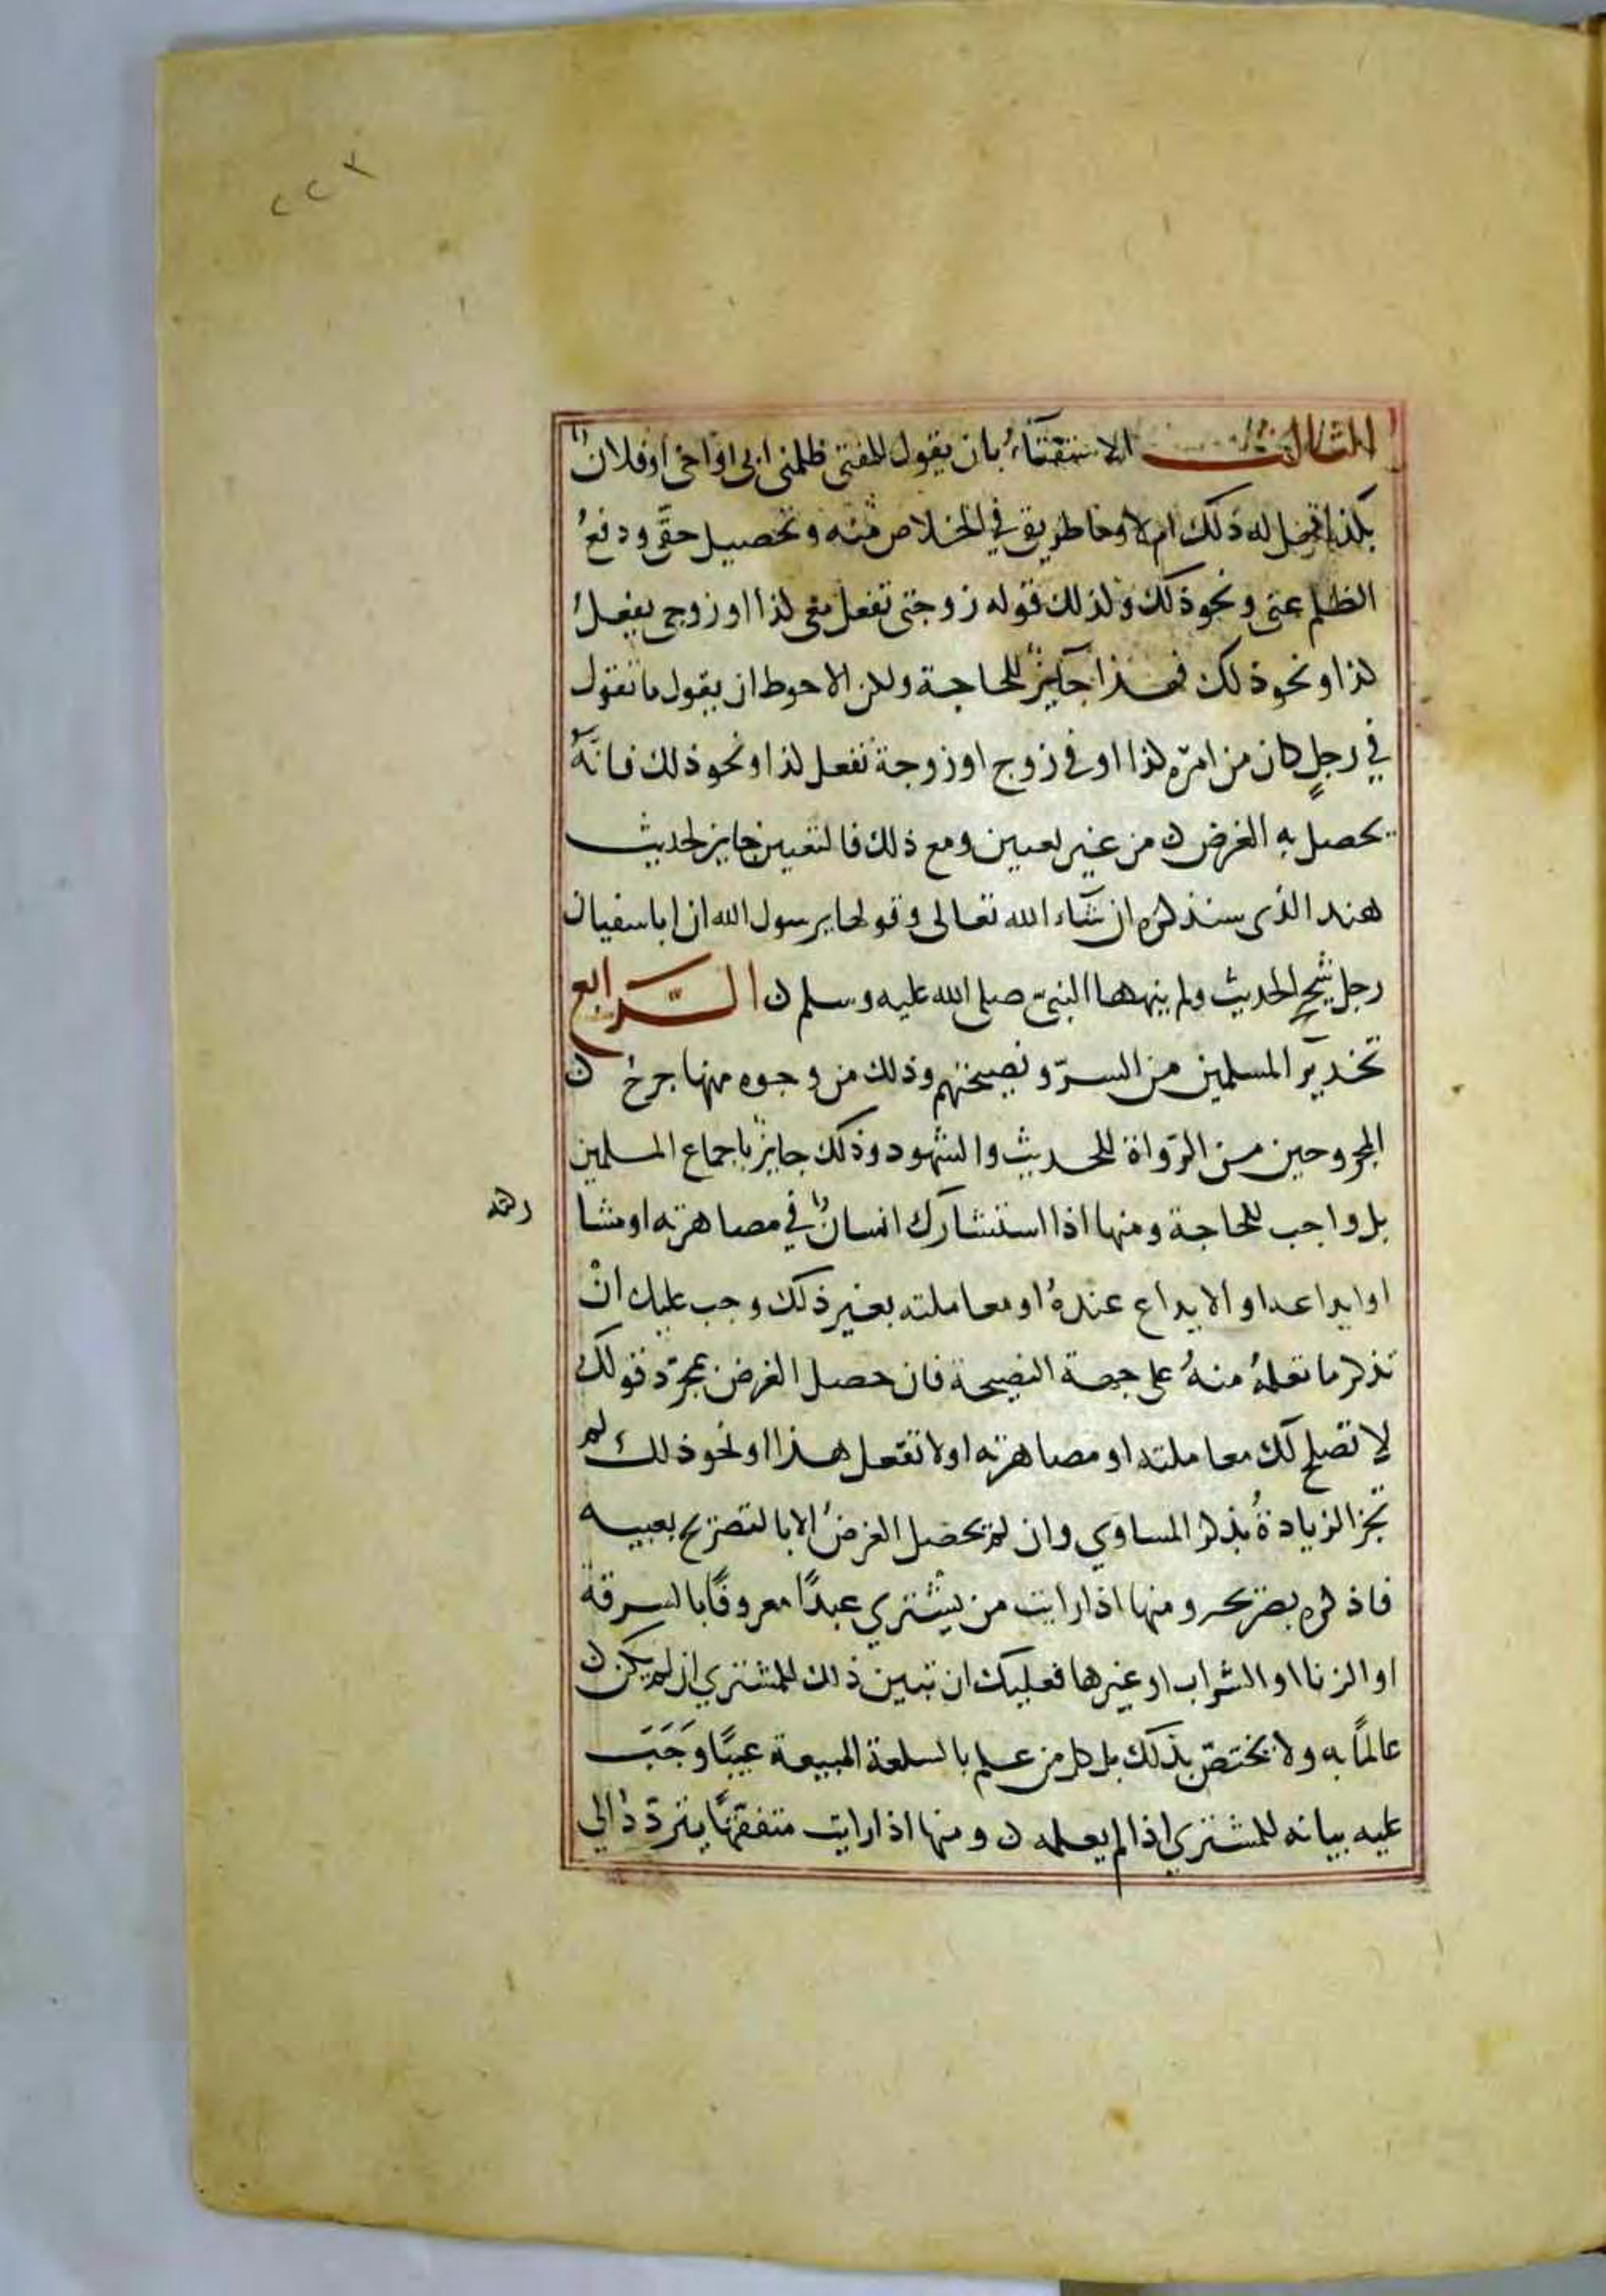 ٢٢٢
الثالث الاستفتاءُ بان يقول للمفتي ظلمني ابي او اخي او فلانٌ
بكذا فهل له ذلك ام لا وما طريقي في الخلاص منه وتحصيل حقّي ودفعُ
الظلم عني ونحو ذلك وكذلك قوله زوجتي تفعل معي كذا او زوجي يفعلُ
كذا ونحو ذلك فهذا جآيزٌ للحاجة ولكن الاحوط ان يقول ما تقول
في رجلٍ كان من امرّه كذا او في زوج او زوجة تفعل كذا ونحو ذلك فانَّهُ
يحصل به الغرض ن من غير تعيين ومع ذلك فالتعيين جايز لحديث
هند الذي سنذكره ان شآء الله تعالى وقولها يرسول الله ان ابا سفيان
رجل شحيح الحديث ولم ينهها النبيّ صلى الله عليه وسلم ن الرَّابع
تحذير المسلمين من السرّ ونصيحتهم وذلك من وجوه منها جرحُ ن
المجروحين من الرّواة للحديث والشهود وذلك جايزٌ باجماع المسلمين
بل واجب للحاجة ومنها اذا استشارك انسانٌ في مصاهرته او مشا
ركته
او ايداعه او الايداع عندهُ او معاملته بغير ذلك وجب عليك انْ
تذكر ما تعلمُهُ منهُ على جهة النصيحة فان حصل الغرض بمجرّد قولك
لا تصلح لك معاملته او مصاهرته او لا تفعل هذا او نحو ذلك لم
تجز الزيادةُ بذكر المساوي وان لم يحصل الغرضُ الا بالتصريح بعيبه
فاذكره بصريحه ومنها اذا رايت من يشتري عبدًا معروفًا بالسرقة
او الزنا او الشراب او غيرها فعليك ان تبين ذلك للمشتري ان لم يكن ن
عالمًا به ولا يختصّ بذلك بل كل من علم بالسلعة المبيعة عيبًا وَجَبَ
عليه بيانه للمشتري اذا لم يعلمه ن ومنها اذا رايت متفقّهًا يتردّدُ الي